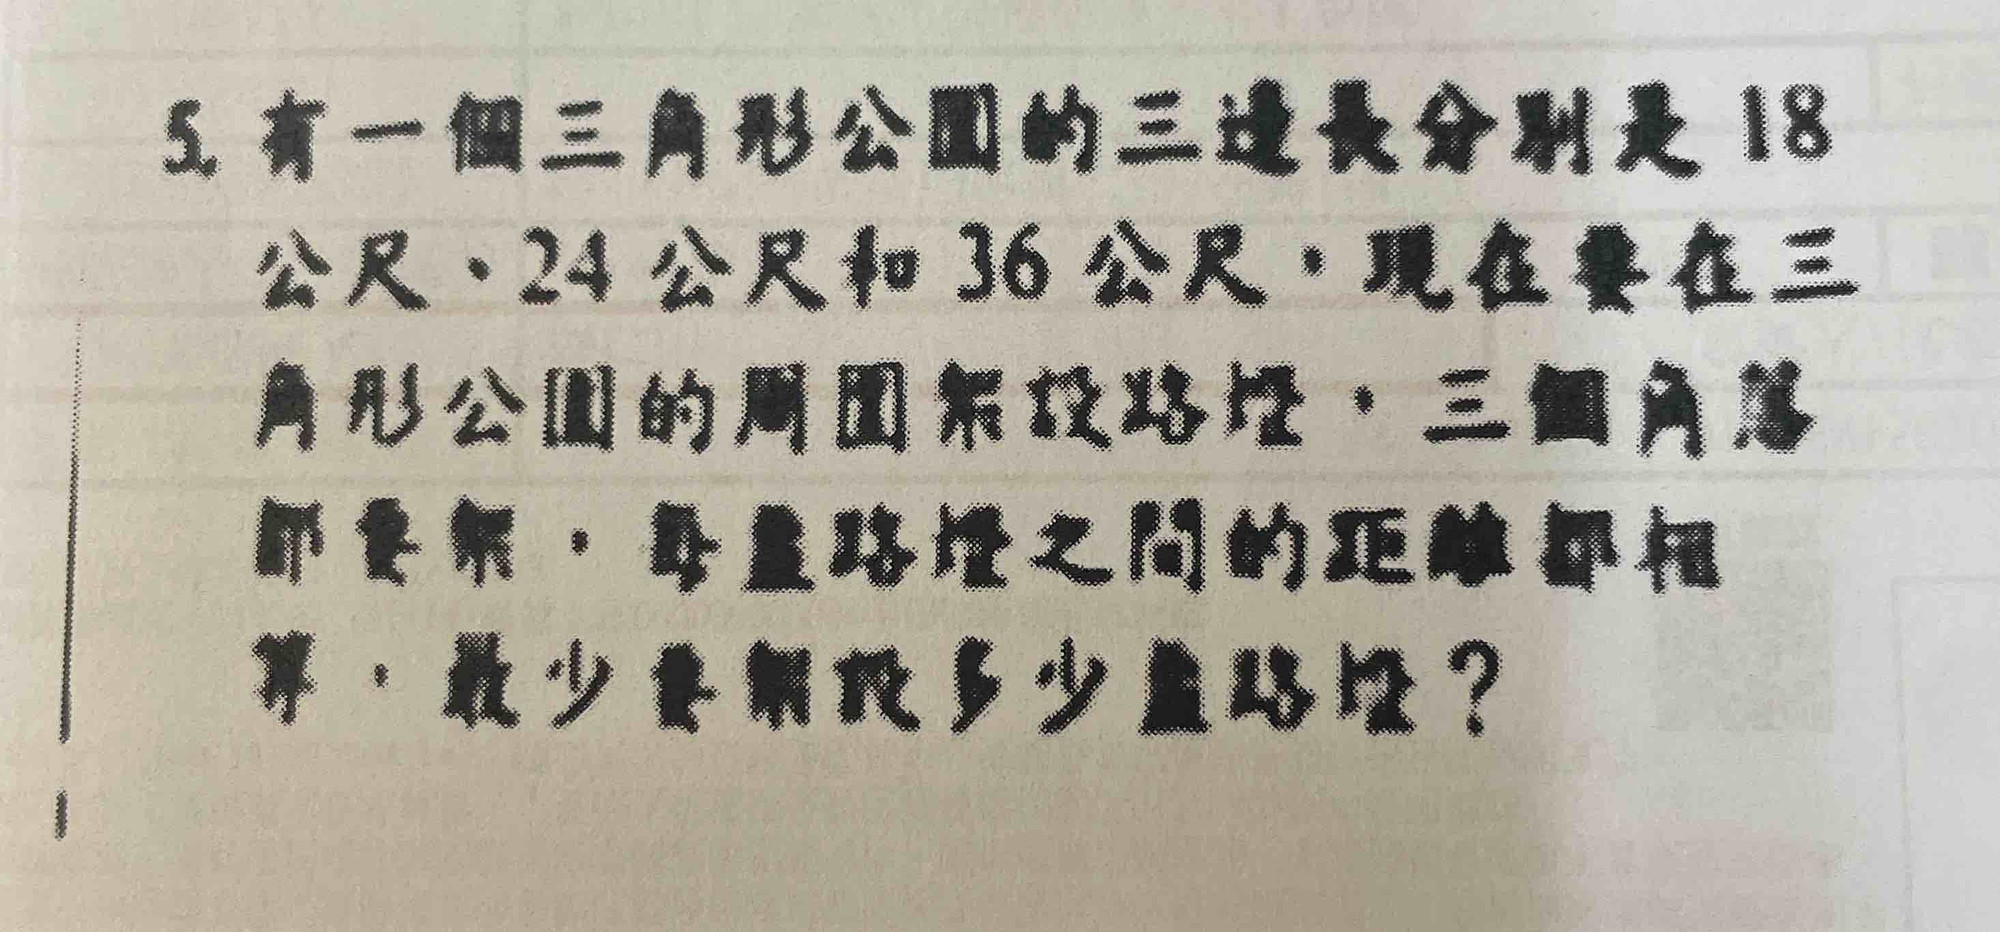 5. 有一個三角形公園的三邊長分別是 18
公尺，24 公尺和 36 公尺，現在要在三
角形公園的周圍架設路燈，三個角落
都要架，每盞路燈之間的距離都相
等，最少要架設多少盞路燈？